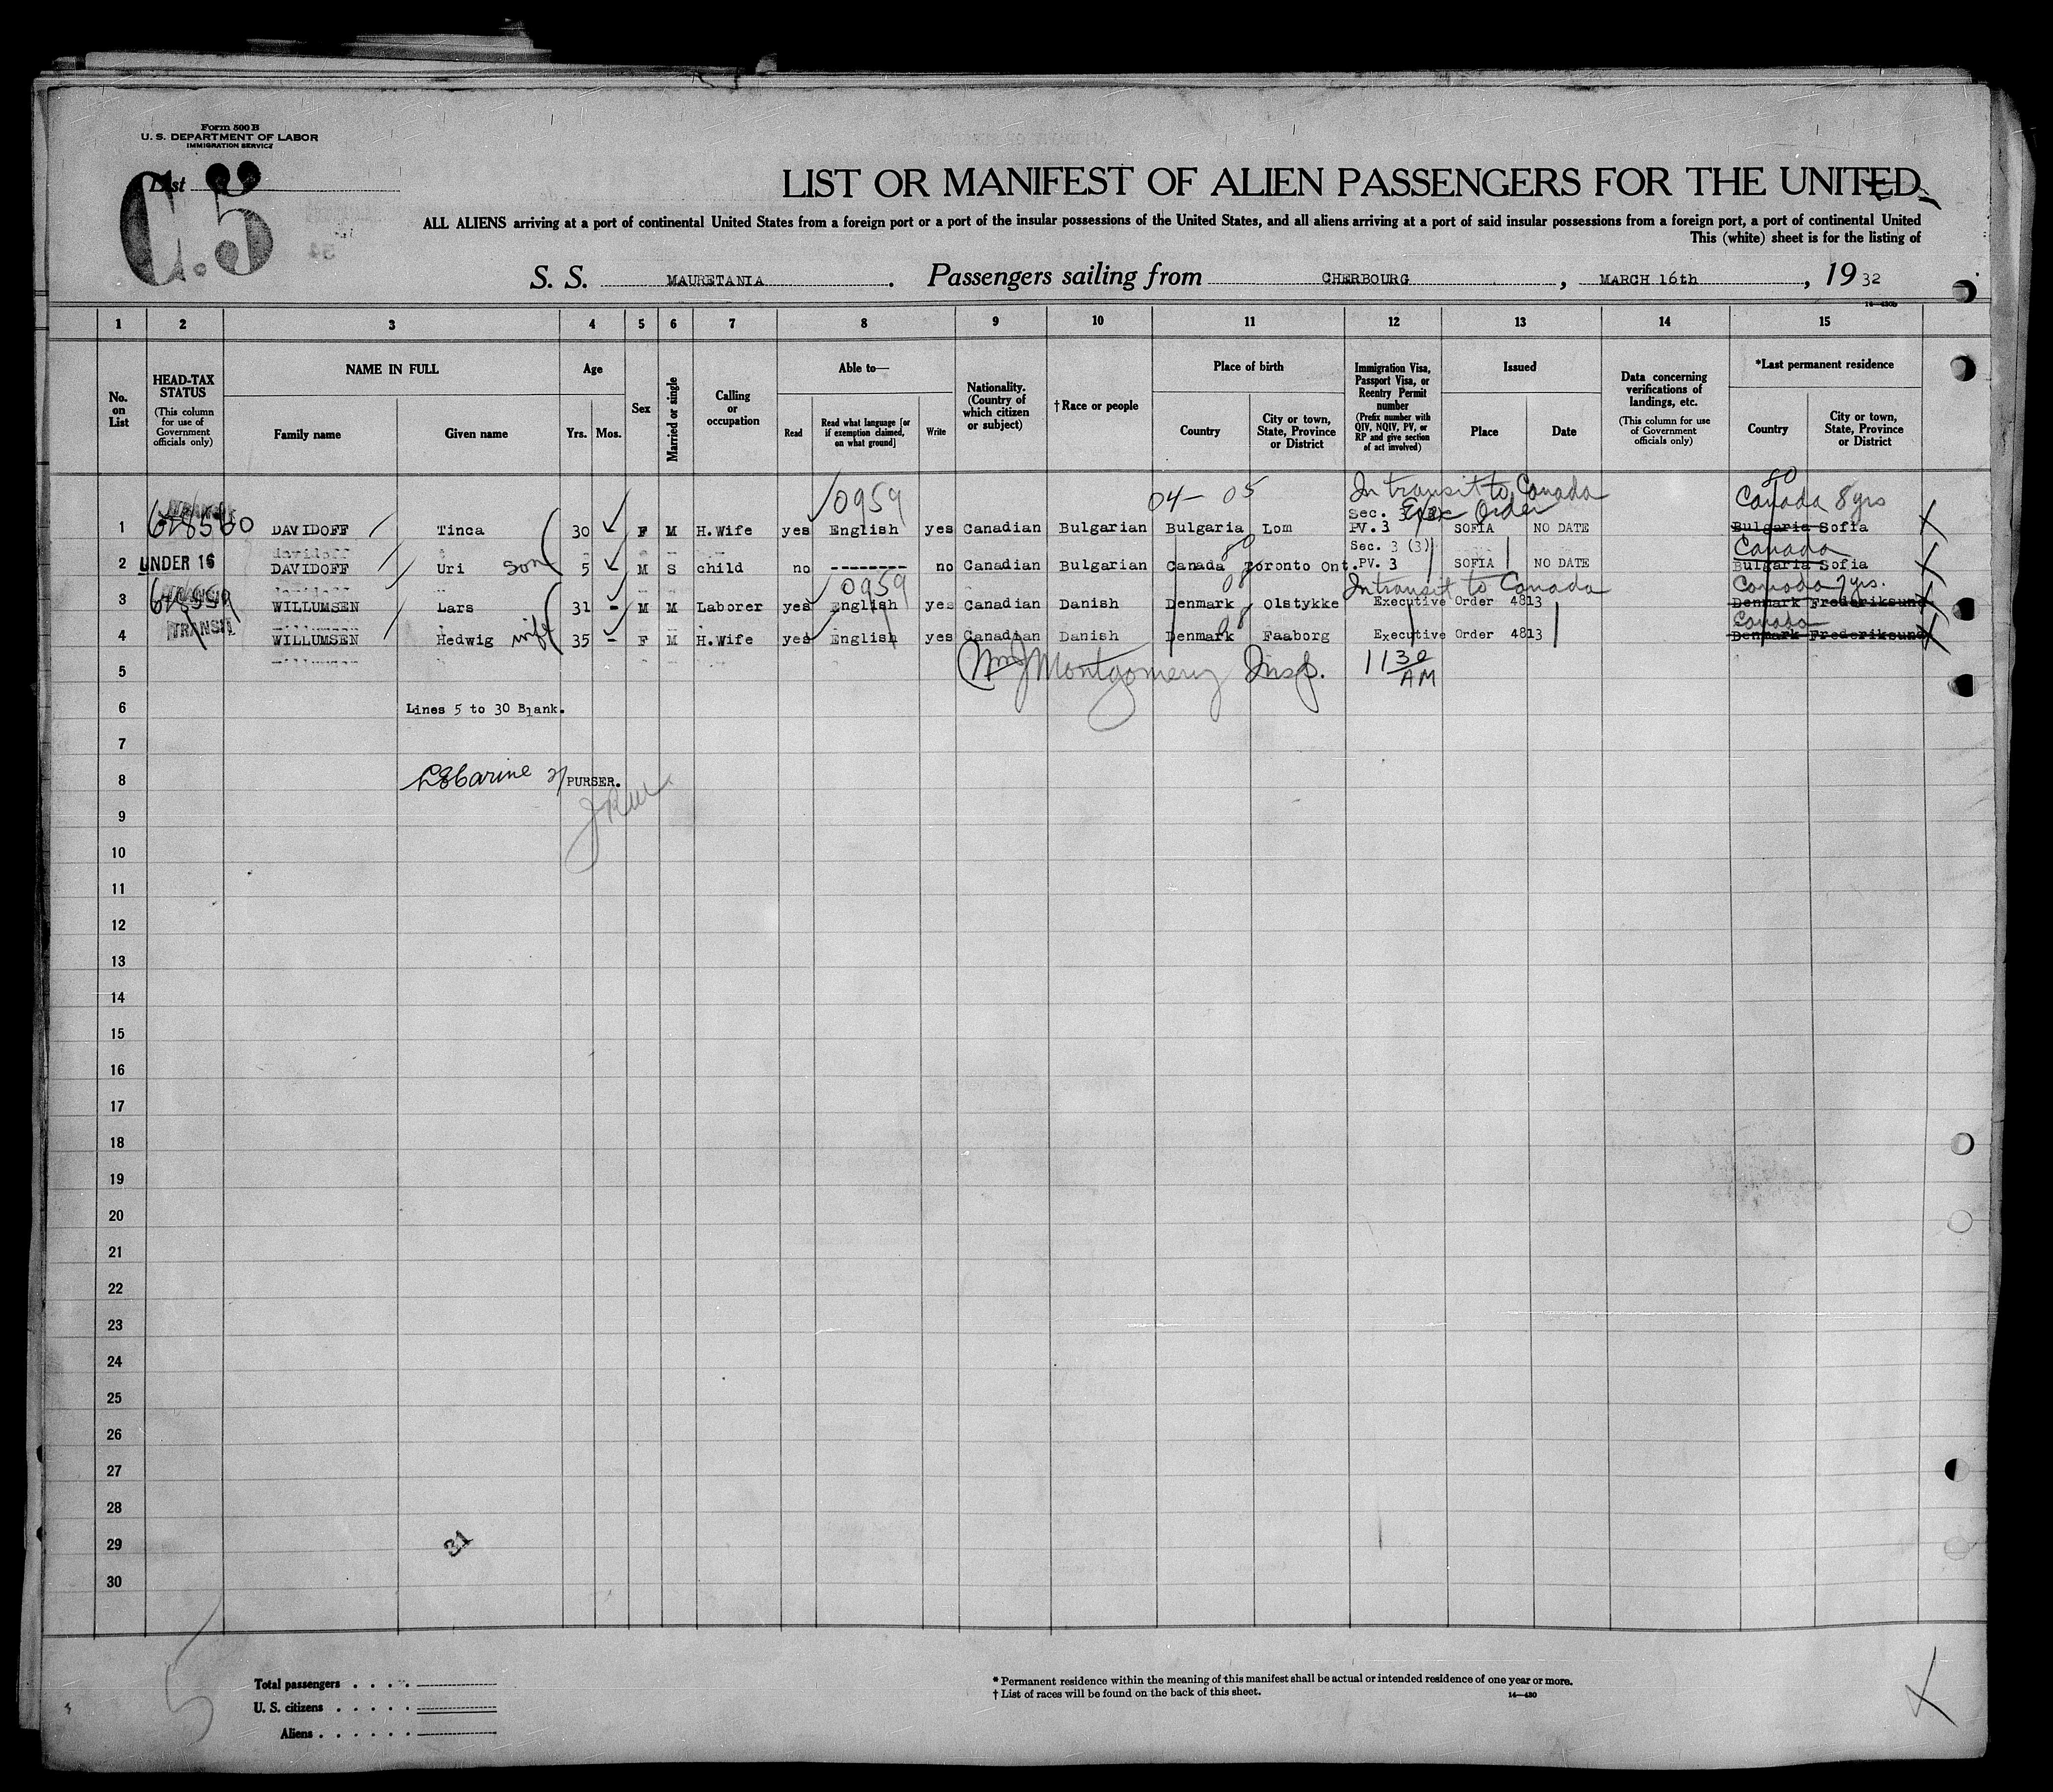 Form 500 B
U. S. DEPARTMENT OF LABOR
IMMIGRATION SERVICE
List
C.5
LIST OR MANIFEST OF ALIEN PASSENGERS FOR THE UNITED
ALL ALIENS arriving at a port of continental United States from a foreign port or a port of the insular possessions of the United States, and all aliens arriving at a port of said insular possessions from a foreign port, a port of continental United
This (white) sheet is for the listing of
S. S. MAURETANIA. Passengers sailing from CHERBOURG, MARCH 16th, 1932
1 2 3 4 5 6 7 8 9 10 11 12 13 14 15
No. on List
HEAD-TAX STATUS (This column for use of Government officials only)
NAME IN FULL
Family name Given name
Age
Yrs. Mos.
Sex
Married or single
Calling or occupation
Able to—
Read Read what language [or if exemption claimed, on what ground] Write
Nationality. (Country of which citizen or subject)
†Race or people
Place of birth
Country City or town, State, Province or District
Immigration Visa, Passport Visa, or Reentry Permit number (Prefix number with QIV, NQIV, PV, or RP and give section of act involved)
Issued
Place Date
Data concerning verifications of landings, etc. (This column for use of Government officials only)
*Last permanent residence
Country City or town, State, Province or District
0959 04- 05 In transit to Canada Canada 8yrs
Sec. 3 Exec Order
1 628560 DAVIDOFF Tinca 30 F M H.Wife yes English yes Canadian Bulgarian Bulgaria Lom PV. 3 SOFIA NO DATE Bulgaria Sofia
Sec. 3 (3) Canada
2 UNDER 16 DAVIDOFF Uri son 5 M S child no -------- no Canadian Bulgarian Canada Toronto Ont. PV. 3 SOFIA NO DATE Bulgaria Sofia
0959 In transit to Canada Canada 7yrs.
3 WILLUMSEN Lars 31 - M M Laborer yes English yes Canadian Danish Denmark Olstykke Executive Order 4813 Denmark Frederiksund
Canada
4 TRANSIT WILLUMSEN Hedwig wife 35 - F M H.Wife yes English yes Canadian Danish Denmark Faaborg Executive Order 4813 Denmark Frederiksund
5 Wm J Montgomery Insp. 11 30 AM
6 Lines 5 to 30 Blank.
7
8 PURSER.
9
10
11
12
13
14
15
16
17
18
19
20
21
22
23
24
25
26
27
28
29 31
30
Total passengers . . . .
U. S. citizens . . . . .
Aliens . . . . . .
* Permanent residence within the meaning of this manifest shall be actual or intended residence of one year or more.
† List of races will be found on the back of this sheet.
14—430